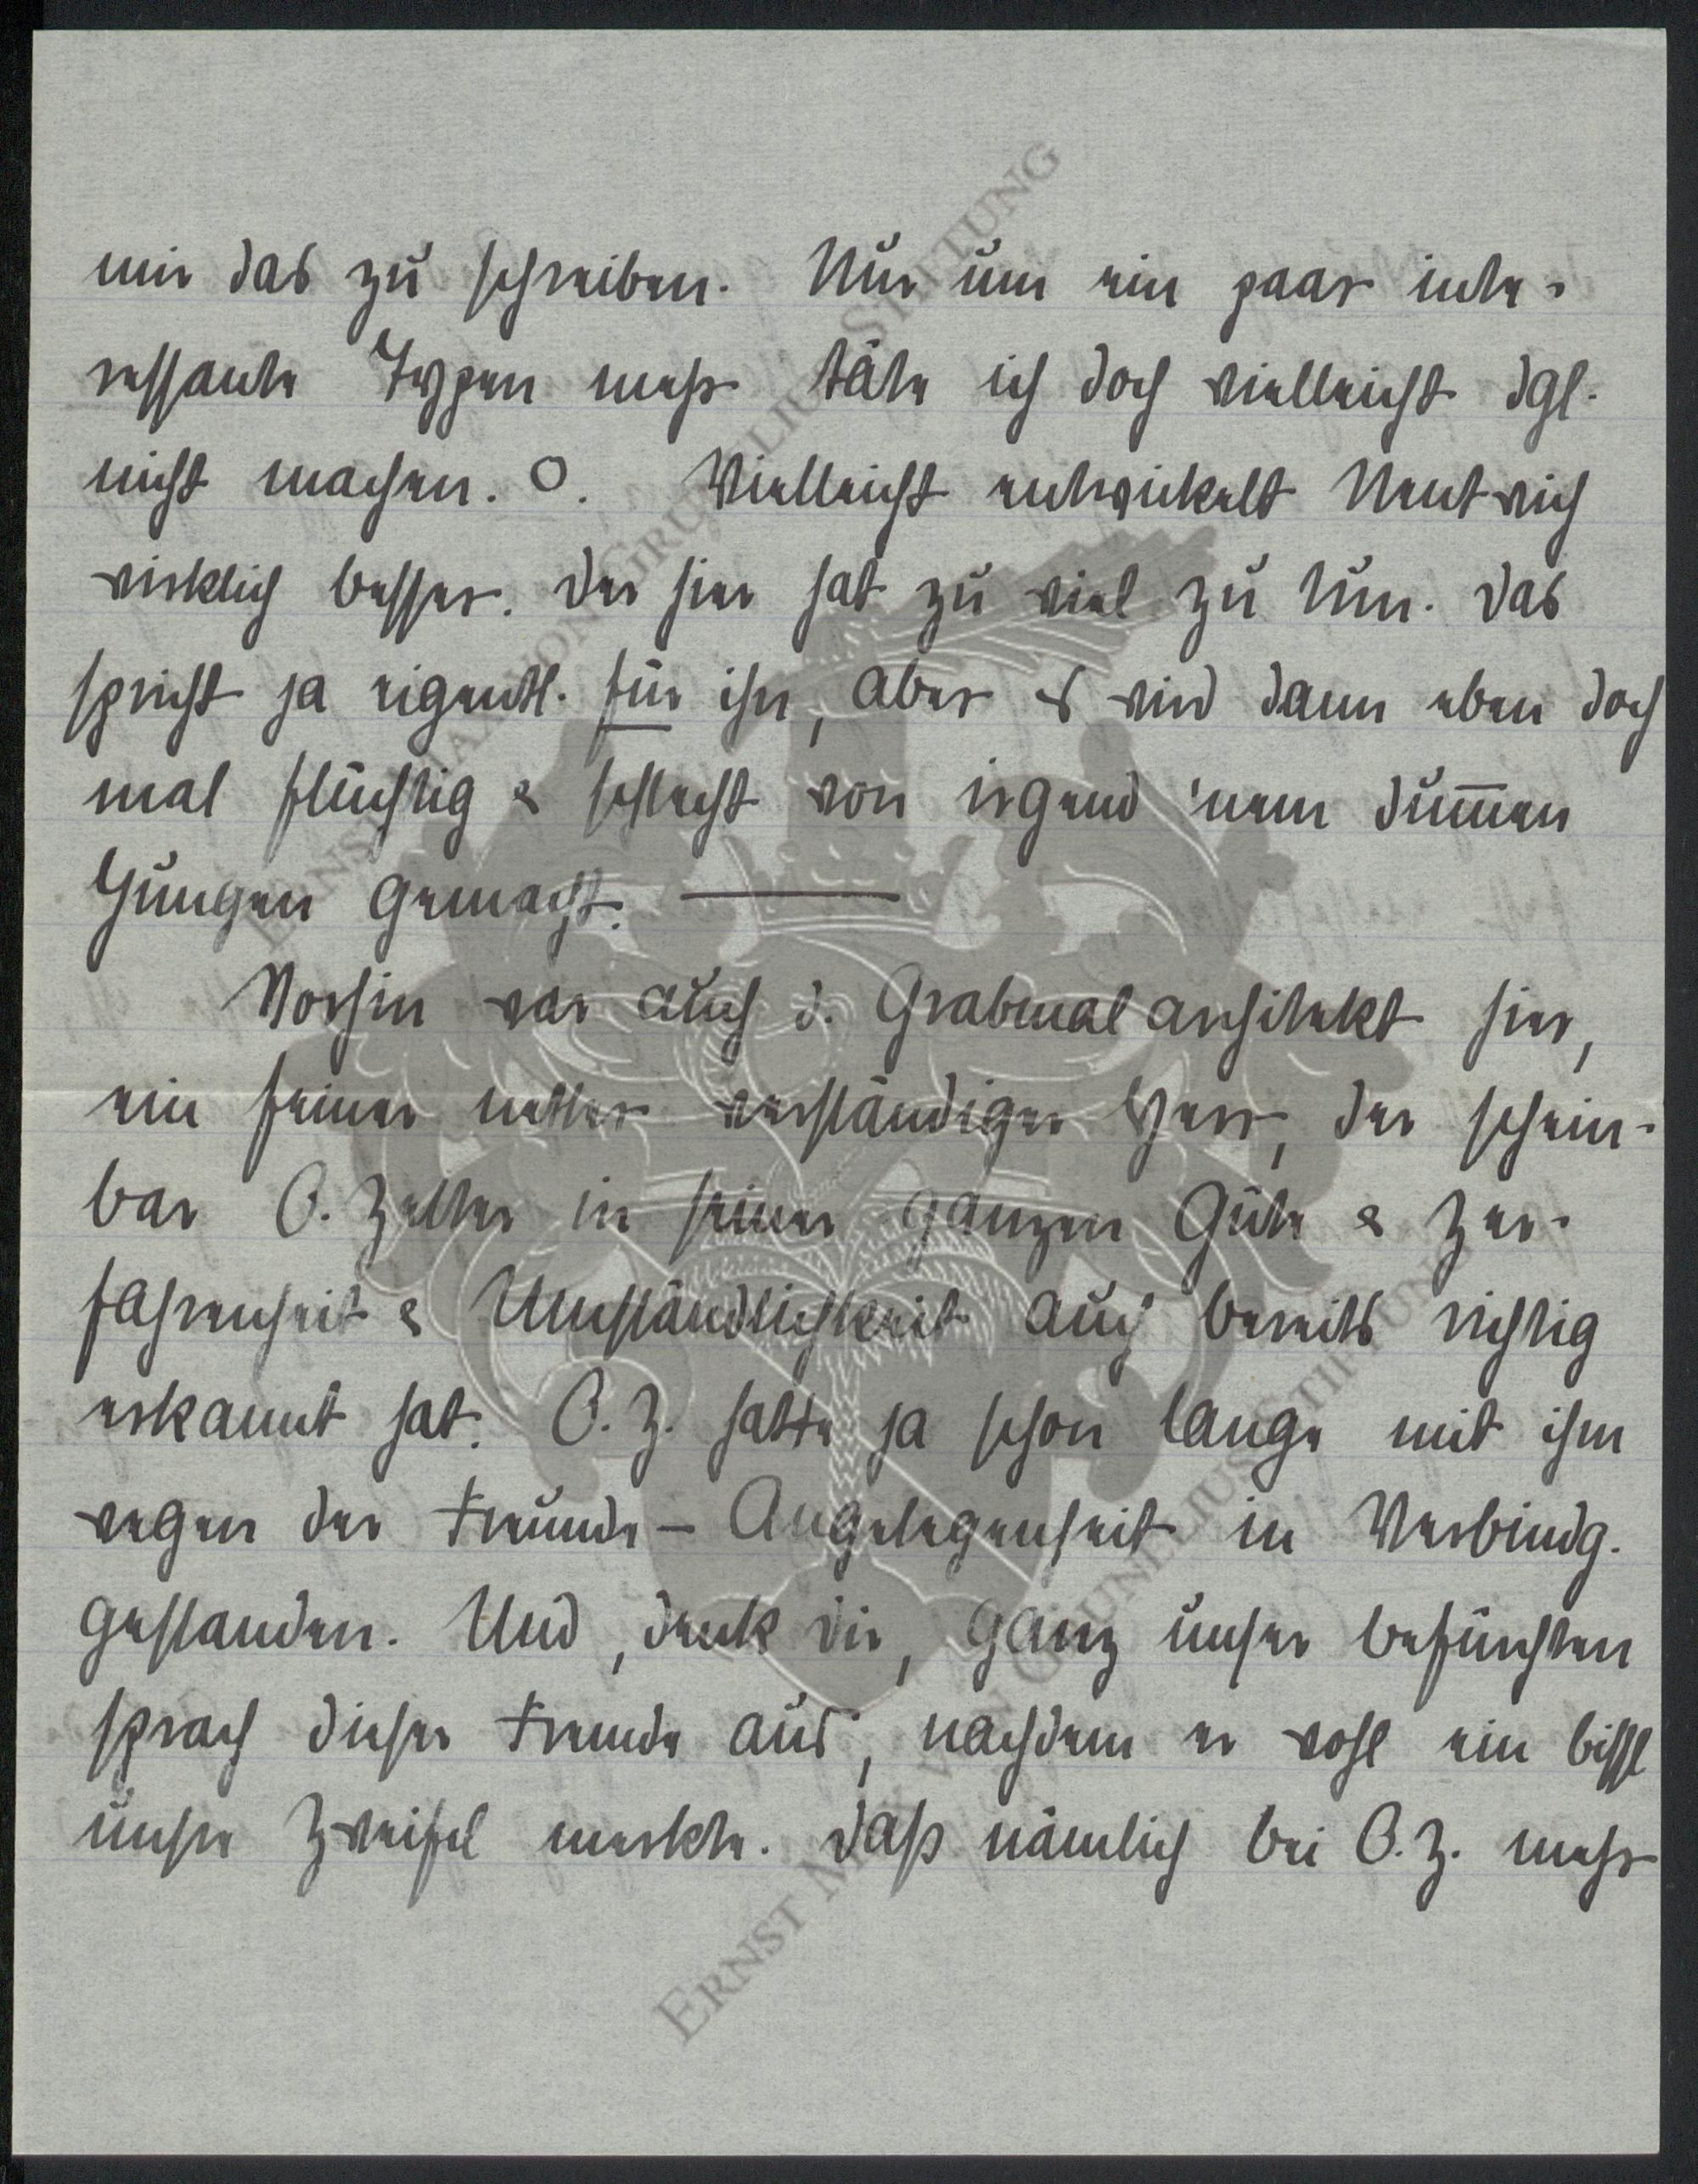 mir das zu schreiben. Nur um ein paar inte-
ressante Typen mehr täte ich doch vielleicht dgl.
nicht machen. O. Vielleicht entwickelt Neut wich
wirklich besser. Der hier hat zu viel zu tun. Das
spricht ja eigentl. für ihn, aber es wird dann eben doch
mal flüchtig & schlecht von irgend 'nem dum̄en
Jungen gemacht. —
Vorhin war auch d. Grabmalarchitekt hier,
ein feiner netter verständiger Herr, der schein-
bar O. Zeller in seiner ganzen Güte & Zer-
fahrenheit & Umständlichkeit auch bereits richtig
erkannt hat. O. Z. hatte ja schon lange mit ihm
wegen der Freunde-Angelegenheit in Verbindg.
gestanden. Und, denk dir, ganz unser befürchten
sprach dieser Fremde aus, nachdem er wohl ein bissl
unsre Zweifel merkte. Daß nämlich bei O. Z. mehr
ERNST MAX VON GRUNELIUS STIFTUNG
ERNST MAX VON GRUNELIUS STIFTUNG